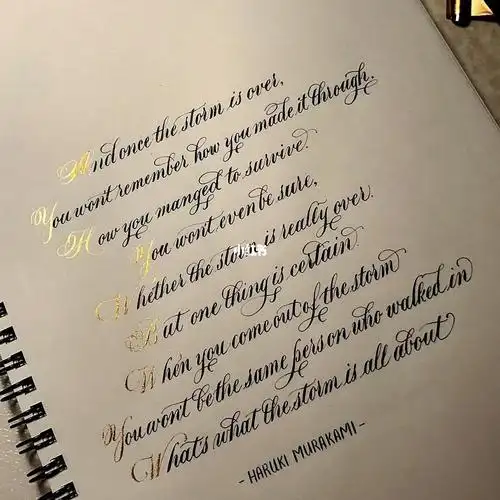 And once the storm is over,
You wont remember how you made it through.
How you manged to survive.
You wont even be sure,
Whether the storm is really over.
But one thing is certain.
When you come out of the storm
You wont be the same person who walked in
Whats what the storm is all about
- HARUKI MURAKAMI -